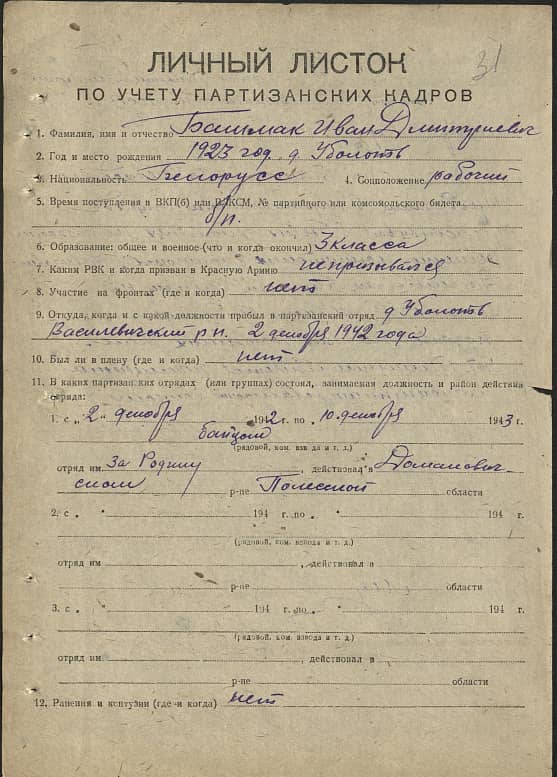 31
ЛИЧНЫЙ ЛИСТОК
ПО УЧЕТУ ПАРТИЗАНСКИХ КАДРОВ
1. Фамилия, имя и отчество Башмак Иван Дмитриевич
2. Год и место рождения 1923 год, д. Уболоть
3. Национальность Белорусс 4. Соцположение рабочий
5. Время поступления в ВКП(б) или ВЛКСМ, № партийного или комсомольского билета
б/п.
6. Образование: общее и военное (что и когда окончил) 3 класса
7. Каким РВК и когда призван в Красную Армию непризывался
8. Участие на фронтах (где и когда) нет
9. Откуда, когда и с какой должности прибыл в партизанский отряд д. Уболоть
Василевичский р-н. 2 декабря 1942 года
10. Был ли в плену (где и когда) нет
11. В каких партизанских отрядах (или группах) состоял, занимаемая должность и район действия
отряда:
1. с „2" декабря 1942 г. по „10. декабря 1943 г.
байцом
(рядовой, ком. взвода и т. д.)
отряд им. За Родину, действовал в Доманович-
ском р-не Полесской области
2. с „ 194 г. по „ 194 г.
(рядовой, ком. взвода и т. д.)
отряд им , действовал в
р-не области
3. с „ 194 г. по „ 194 г.
(рядовой, ком. взвода и т. д.)
отряд им , действовал в
р-не области
12. Ранения и контузии (где и когда) нет